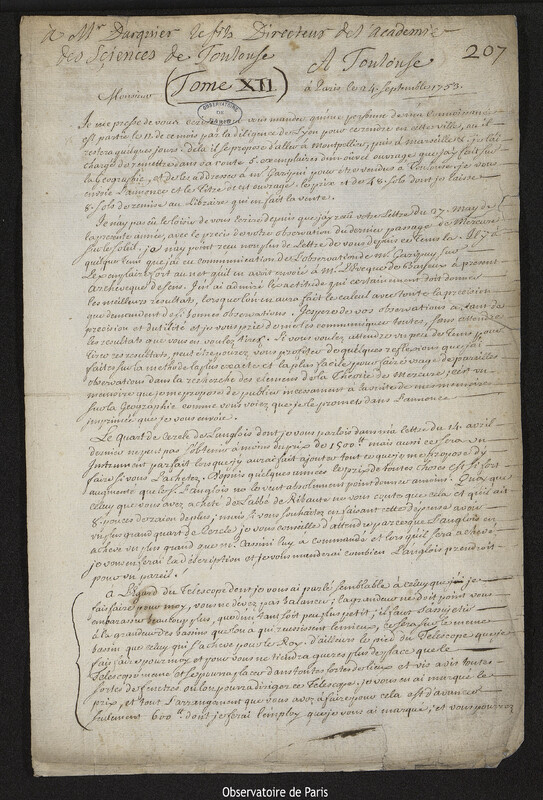 à Mr Darquier le fils Directeur de l'Academie
des Sciences de Toulouse
A Toulouse
207
Tome XII
OBSERVATOIRE DE PARIS
Monsieur
à Paris le 14. Septembre 1753.
Je me presse de vous écrire pour vous mander qu'une personne de ma connoissance
est partie le 11. de ce mois par la diligence de Lyon pour se rendre en cette ville, où il
restera quelques jours. Delà il se propose d'aller à Montpellier, puis à Marseille &c. je l'ai
chargé de remettre dans sa route 5. exemplaires d'un ouvrage que j'ay fait sur
la Geographie, et de les addresser à Mr. Garipuy pour être vendus à Toulouse. je vous
envoie l'annonce et le titre de cet ouvrage. le prix est de 48. sols dont je laisse
8. sols de remise au Libraire qui en fait la vente.
Je n'ay pas eû le loisir de vous écrire depuis que j'ay reçû votre Lettre du 27. May de
la presente année, avec le precis de votre observation du dernier passage de Mercure
sur le Soleil. je n'ay point reçu non plus de Lettre de vous depuis ce tems là.
quelque tems que j'ai eu communication de l'observation de Mr. Garipuy sur
l'exemplaire fort au net qu'il en avoit envoié à Mr. l'Evêque de à present
Archevêque de Sens. J'en ai admiré l'exactitude qui certainement doit donner
les meilleurs résultats, lorsque l'on en aura fait le calcul avec toute la précision
que demandent de si bonnes observations. J'espere de vos observations autant de
précision et d'utilité et je vous prie de me les communiquer toutes, sans attendre
les resultats que vous en voulez tirer. Si vous voulez attendre un peu de tems pour
tirer ces resultats, peut être pourrez vous profiter de quelques reflexions que j'ai
faites sur la methode la plus exacte et la plus facile pour faire usage de pareilles
observations dans la recherche des elemens de la Théorie de Mercure; c'est un
memoire que je me propose de publier incessamment à la suite de mes memoires
sur la Geographie comme vous voiez que je le promets dans l'annonce
imprimée que je vous envoie.
Le quart de Cercle de Langlois dont je vous parlois dans ma lettre du 14. avril
dernier ne peut pas s'obtenir à moins du prix de 1500.tt mais aussi ce sera un
Instrument parfait lorsque j'y aurai fait ajouter tout ce que je me propose d'y
faire si vous l'achetez. Depuis quelques années le prix de toutes choses est si fort
augmenté que le Sr. Langlois ne le veut absolument point donner à moins. Quoi que
celuy que vous avez acheté de l'abbé de Ribaute ne vous coute que cela et qu'il ait
8. pouces de raion de plus; mais si vous souhaitez en faisant cette depense avoir
un plus grand quart de Cercle je vous conseille d'attendre parceque Langlois en
achève un plus grand que Mr. Cassini luy a commandé et lorsqu'il sera achevé
je vous en ferai la description et je vous manderai combien Langlois prendroit
pour un pareil.
A l'égard du Telescope dont je vous ai parlé semblable à celuy que j'ai
fais faire pour moy, vous ne devez pas balancer; la grandeur ne doit point vous
embarasser beaucoup plus, quand même tant soit peu plus petit; il faut s'assujetir
à la grandeur des bassins que l'on a qui reussissent le mieux, ce sera sur le même
bassin que celuy qu'il achève pour le Roy. d'ailleurs le pied du Telescope que je
fais faire pour moy et pour vous ne tiendra gueres plus de place que le
Telescope même et se pourra placer dans toutes sortes de lieux et vis avis toutes
sortes de fenetres où l'on pourra diriger ce Telescope. je vous en ai marqué le
prix, et tout l'arrangement que vous avez à faire pour cela est d'avancer
seulement 600.tt dont je ferai l'emploi que je vous ai marqué; et vous pourrez
Observatoire de Paris